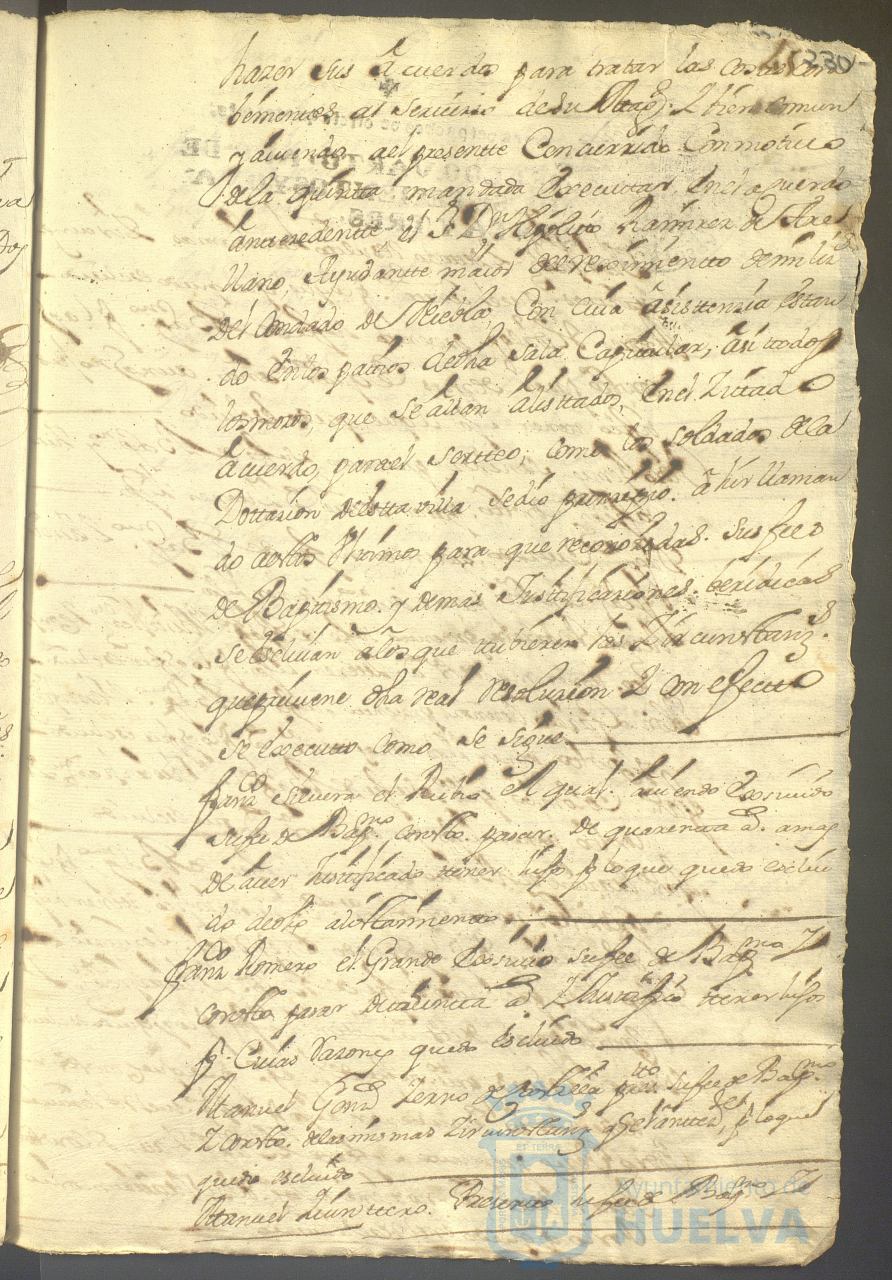 330
hazer sus Acuerdos para tratar las cosas con
benientes al servicio de su Magd. Y bien comun
y auiendo al presente Concurrido Con motiuo
de la quinta mandada Executar en el acuerdo
antezedente el Sr. Dn. Ramirez de Are
llano, Ayudante maior de reximiento de miliz
del Condado de Niebla, Con cuia asistenzia estan
do en los patios de dha sala Capitular, asi todos
los mozos, que se allan alistados, en el Zitado
Acuerdo, para el sorteo, como los soldados de la
Dottazion de esta villa se dio prinzipio a hir llaman
do a ottos para que reconozidas sus fees
de Baptismo y demas Justificaziones beridicas
se Escluian a los que tubieren las Zircunstanzs.
que preuiene dha real resoluzion Y con efecto
se executto como se sigue
Franco. el Rubio el qual auiendo Exsiuido
su fe de Bapmo. consto pasar de quarenta as. a mas
de auer Justificado tener hijos p lo que quedo exclui
do de otto alistamiento
Franco Romero el Grande Exsiuio su fee de Bapmo Y
consto pasar de as. Y Justifico tener hijos
pr. Cuias Razones quedo Escluido
Manuel Gonz su fee de Bapmo.
Y consto de las mismas Zircunstanz p lo que
quedo escluido
Manuel Presento su fee de Bapmo Y
Ayuntamiento de
HUELVA